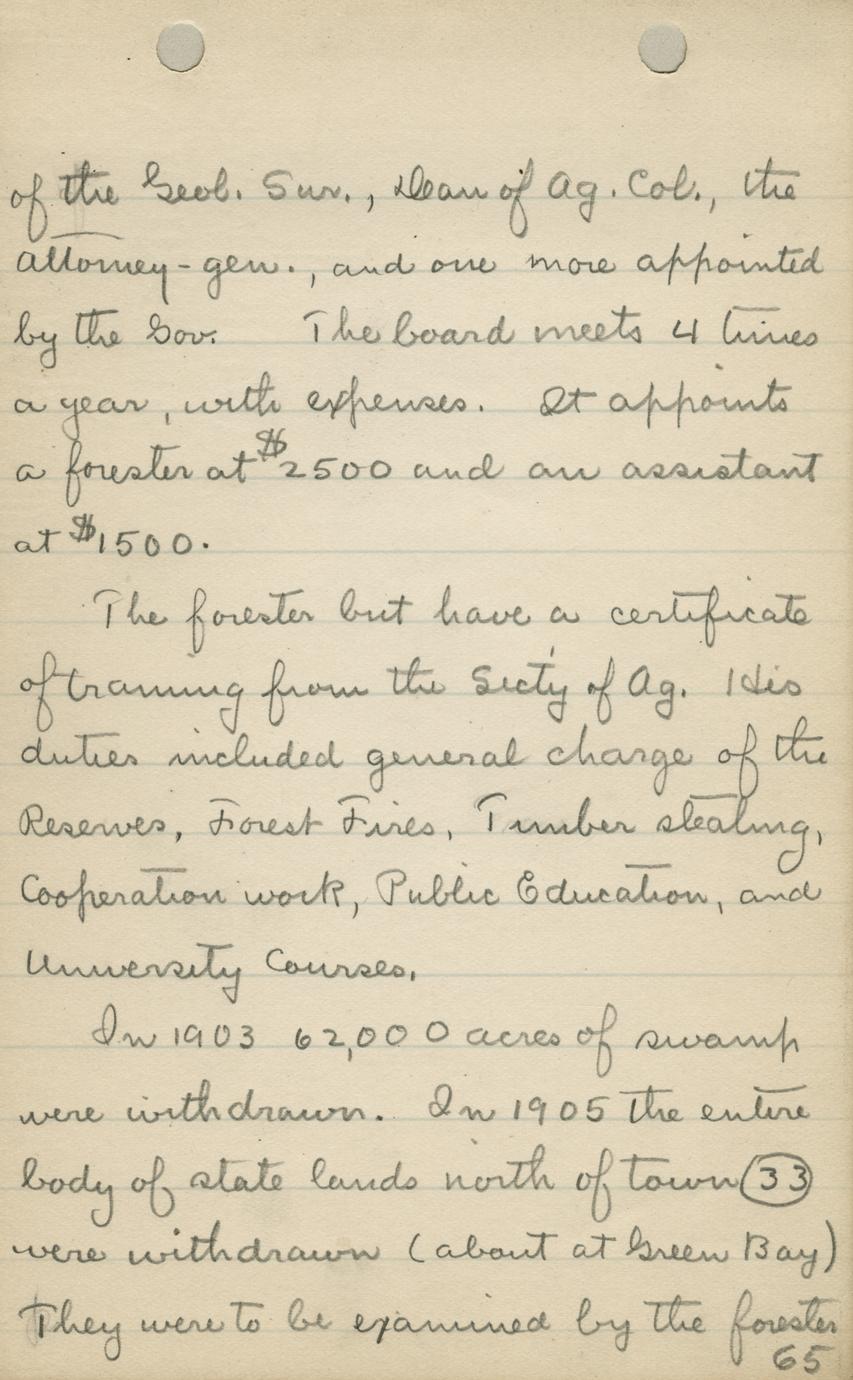 of the Geol. Sur., Dean of Ag. Col., the
attorney-gen., and one more appointed
by the Gov. The board meets 4 times
a year, with expenses. It appoints
a forester at $2500 and an assistant
at $1500.
The forester but have a certificate
of training from the Sect'y of Ag. His
duties included general charge of the
Reserves, Forest Fires, Timber stealing,
Cooperation work, Public Education, and
University Courses.
In 1903 62,000 acres of swamp
were withdrawn. In 1905 the entire
body of state lands north of town 33
were withdrawn (about at Green Bay)
They were to be examined by the forester
65